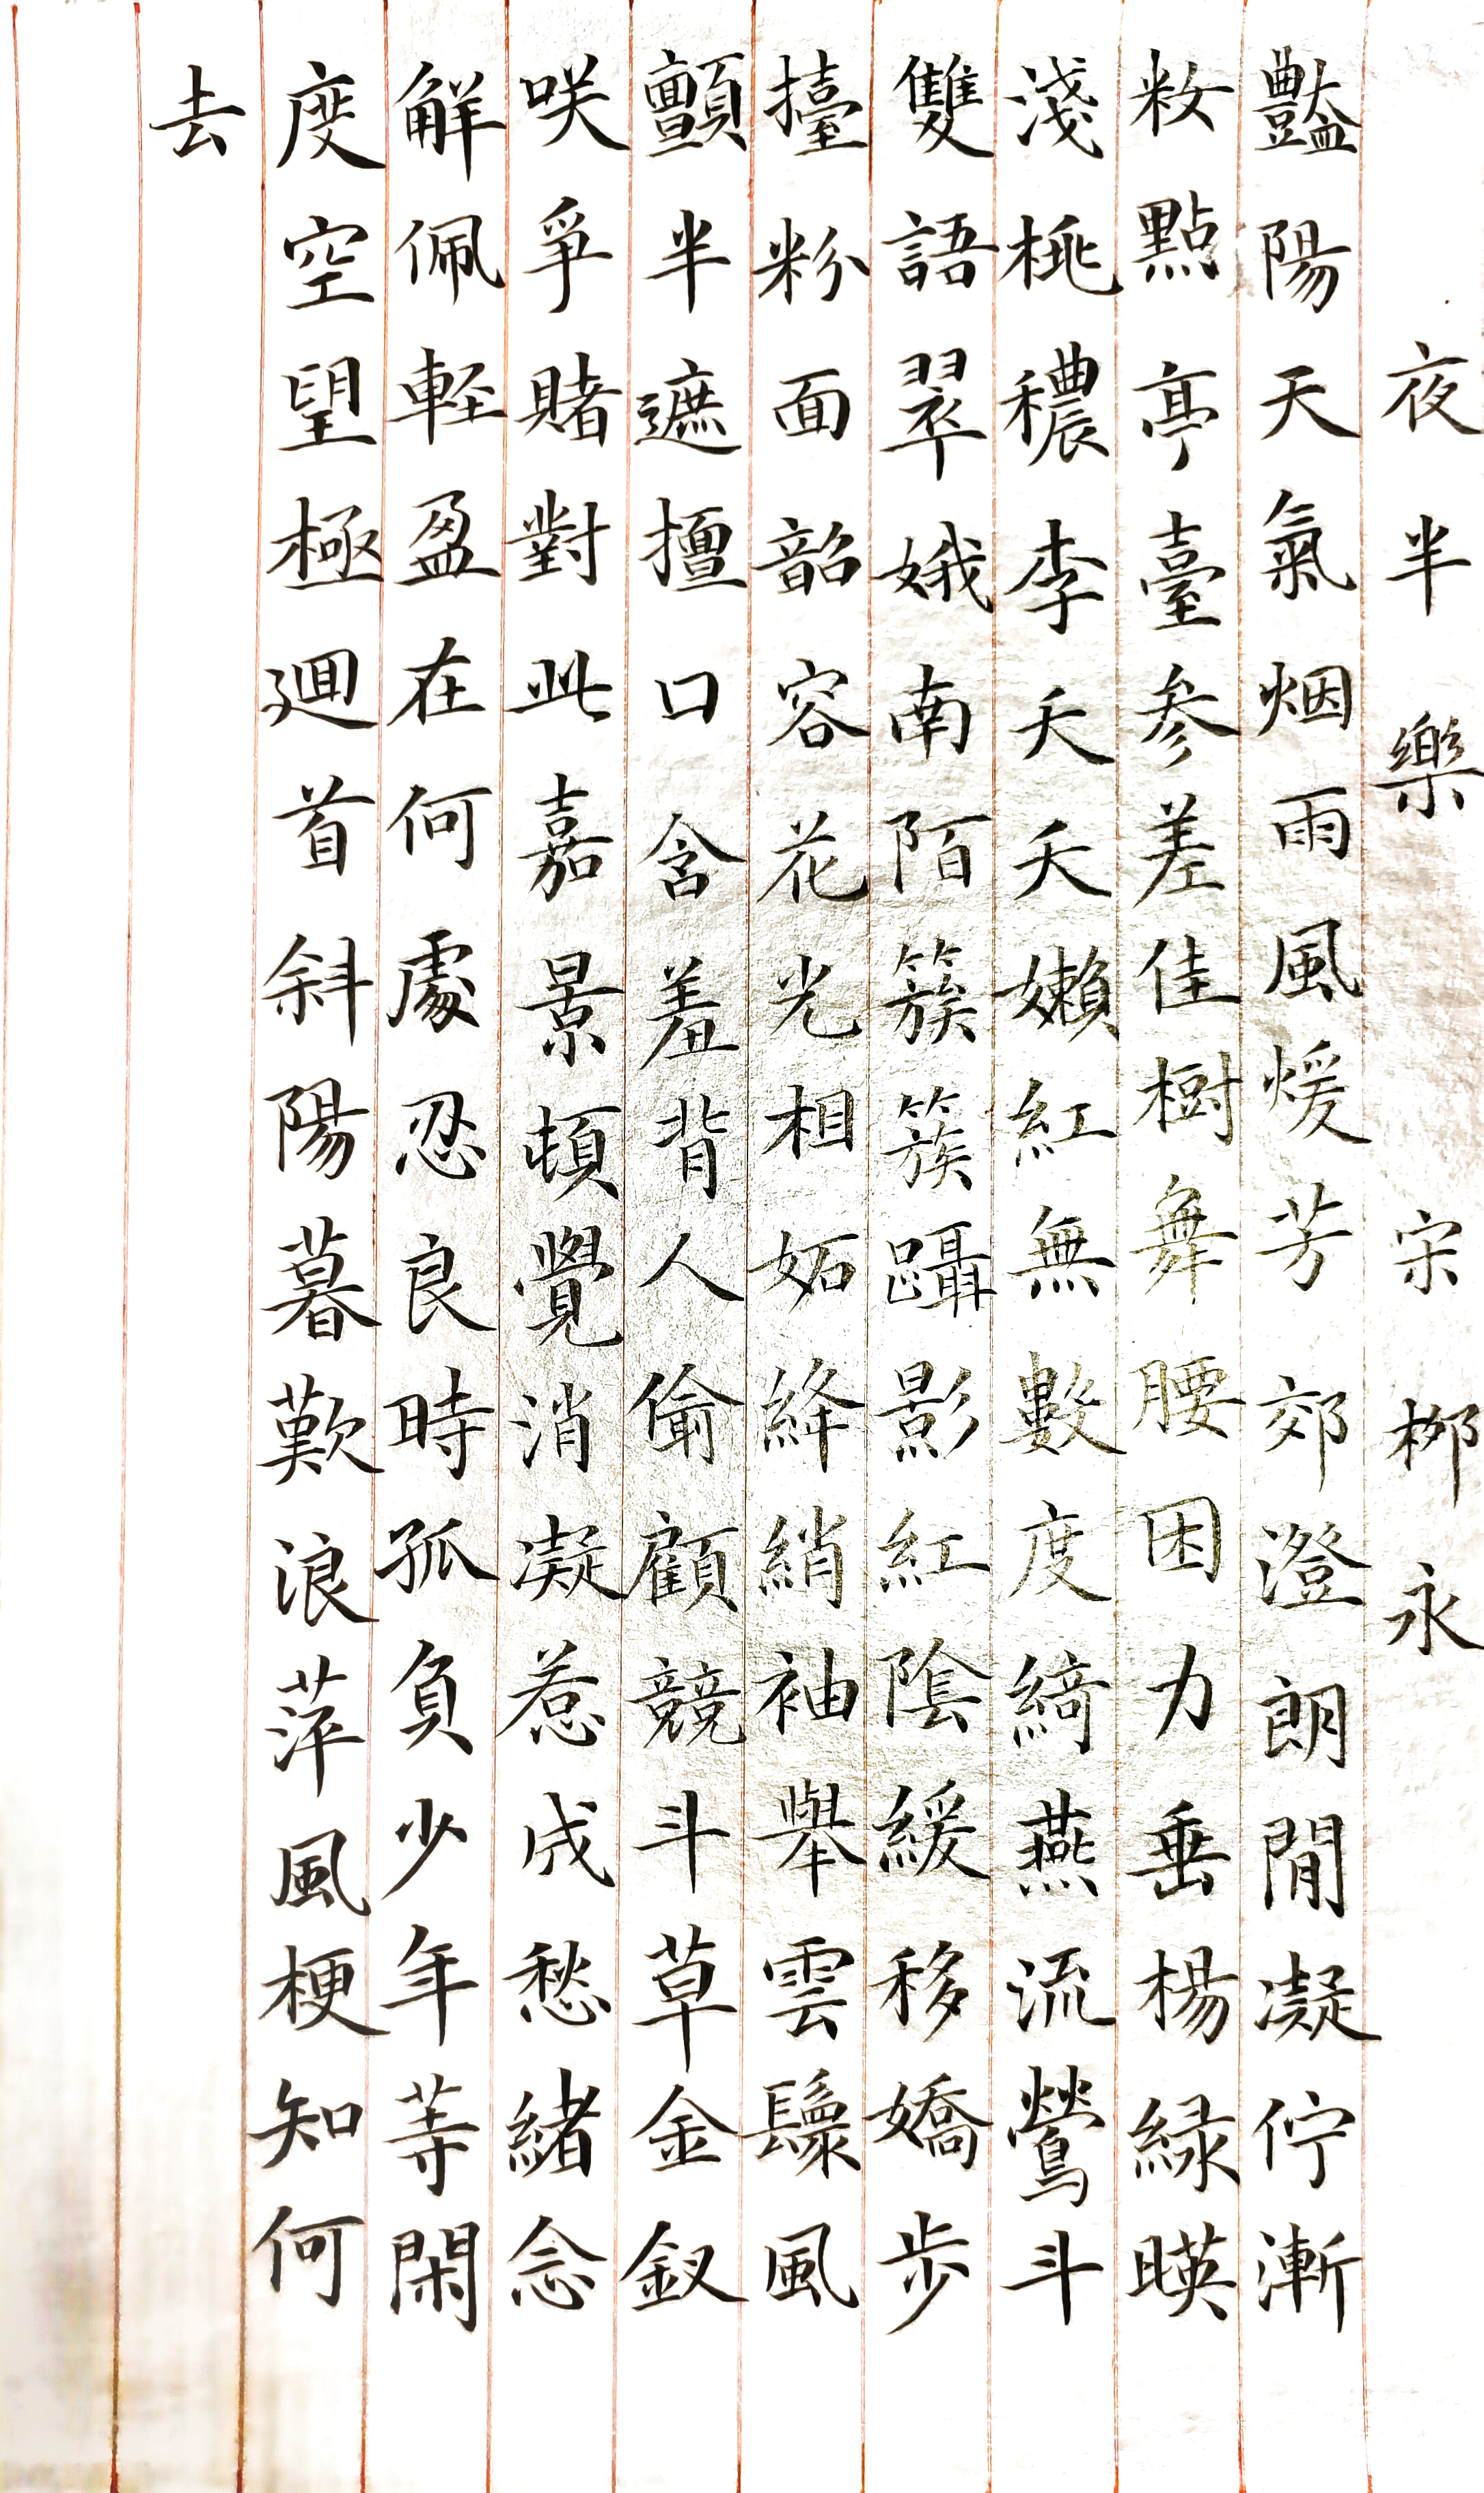 夜半樂 宋 柳永
豔陽天氣烟雨風煖芳郊澄朗閒凝佇漸
妝點亭臺参差佳樹舞腰困力垂楊緑暎
淺桃穠李夭夭嫩紅無數度綺燕流鶯斗
雙語翠娥南陌簇簇躡影紅陰緩移嬌步
擡粉面韶容花光相妬絳綃袖舉雲鬟風
顫半遮擅口含羞背人偷顧競斗草金釵
咲爭賭對此嘉景頓覺消凝惹成愁緒念
解佩輕盈在何處忍良時孤負少年等閑
度空望極迴首斜陽暮歎浪萍風梗知何
去